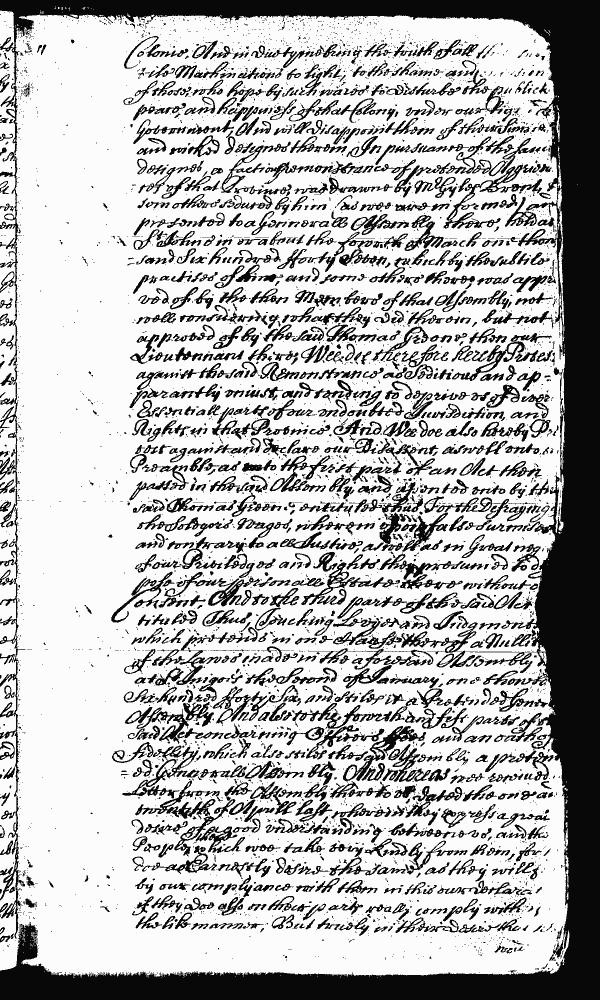 Colonie, And in due tyme bring the truth of all
vile Machinations to light, to the shame and
of those, who hope by such waies to disturbe the publick
peace, and happiness of that Colony, under our
Government, And will disappoint them of their
and wicked designes therein, In pursuance of the
designes, a factious Remonstrance of pretended
of that Province, was drawne by Mr Gyles Brent, &
som others seduced by him (as wee are informed) and
presented to a Gennerall Assembly there, held at
St Johns in or about the fowrth of March one thou
sand Six hundred fforty Seven, which by the subtile
practises of him, and some others there, was appro
ved of by the then Members of that Assembly, not
well considering what they did therein, but not
approved of by the said Thomas Greene, then our
Lieutennant there, Wee doe therefore hereby Protest
against the said Remonstrance as Seditious and ap-
parantly uniust, and tending to deprive us of divers
Essentiall parts of our undoubted Jurisdiction, and
Rights in that Province And Wee doe also hereby Pro
test against and declare our Disassent, as well onto
Preamble, as unto the first part of an Act then
passed in the said Assembly, and assented onto by the
said Thomas Greene, entituled thus, For the Defraying
the Soldyers Wages, wherein upon false Surmises
and contrary to all Justice, as well as in Great neg
of our Priviledges and Rights they presumed to dis
pose of our personall Estate there without our
Consent, And to the third parte of the said Act
tituled Thus, Touching Levyes and Judgments
which pretends in one Clause thereof a Nullity
of the Lawes made in the aforesaid Assembly
att St Inigo's the Second of January, one thousand
Six hundred fforty Six, and stiles it a Pretended Generall
Assembly, And also to the fowrth and fift parts of the
said Act concearning Officers ffees, and an oath of
Fidellity, which also stiles the said Assembly a pretend
ed Gennerall Assembly. And whereas wee received
Letter from the Assembly there to us, dated the one and
twentith of Aprill last, wherein they express a great
desire of a Good understanding betweene us, and the
People, which wee take very kindly from them, for
doe as Earnestly desire the same, as they will
by our complyance with them in this our declara
if they doe also on their parts really comply with us
the like manner, But truely in their desire that